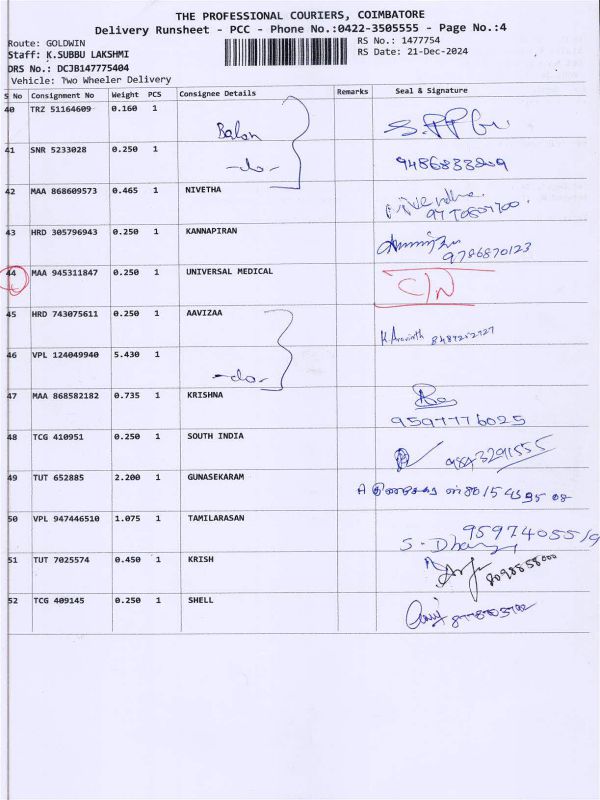 THE PROFESSIONAL COURIERS, COIMBATORE
Delivery Runsheet - PCC - Phone No.:0422-3505555 - Page No.:4
Route: GOLDWIN
RS No.: 1477754
Staff: K.SUBBU LAKSHMI
RS Date: 21-Dec-2024
DRS No.: DCJB147775404
Vehicle: Two Wheeler Delivery
S No Consignment No Weight PCS Consignee Details Remarks Seal & Signature
40 TRZ 51164609 0.160 1 Balan
41 SNR 5233028 0.250 1 -do- 9486833809
42 MAA 868609573 0.465 1 NIVETHA
43 HRD 305796943 0.250 1 KANNAPIRAN 9786870123
44 MAA 945311847 0.250 1 UNIVERSAL MEDICAL C/N
45 HRD 743075611 0.250 1 AAVIZAA K.Aravinth
46 VPL 124049940 5.430 1 -do-
47 MAA 868582182 0.735 1 KRISHNA 9597776025
48 TCG 410951 0.250 1 SOUTH INDIA 9843291555
49 TUT 652885 2.200 1 GUNASEKARAM
50 VPL 947446510 1.075 1 TAMILARASAN
51 TUT 7025574 0.450 1 KRISH 8098858000
52 TCG 409145 0.250 1 SHELL